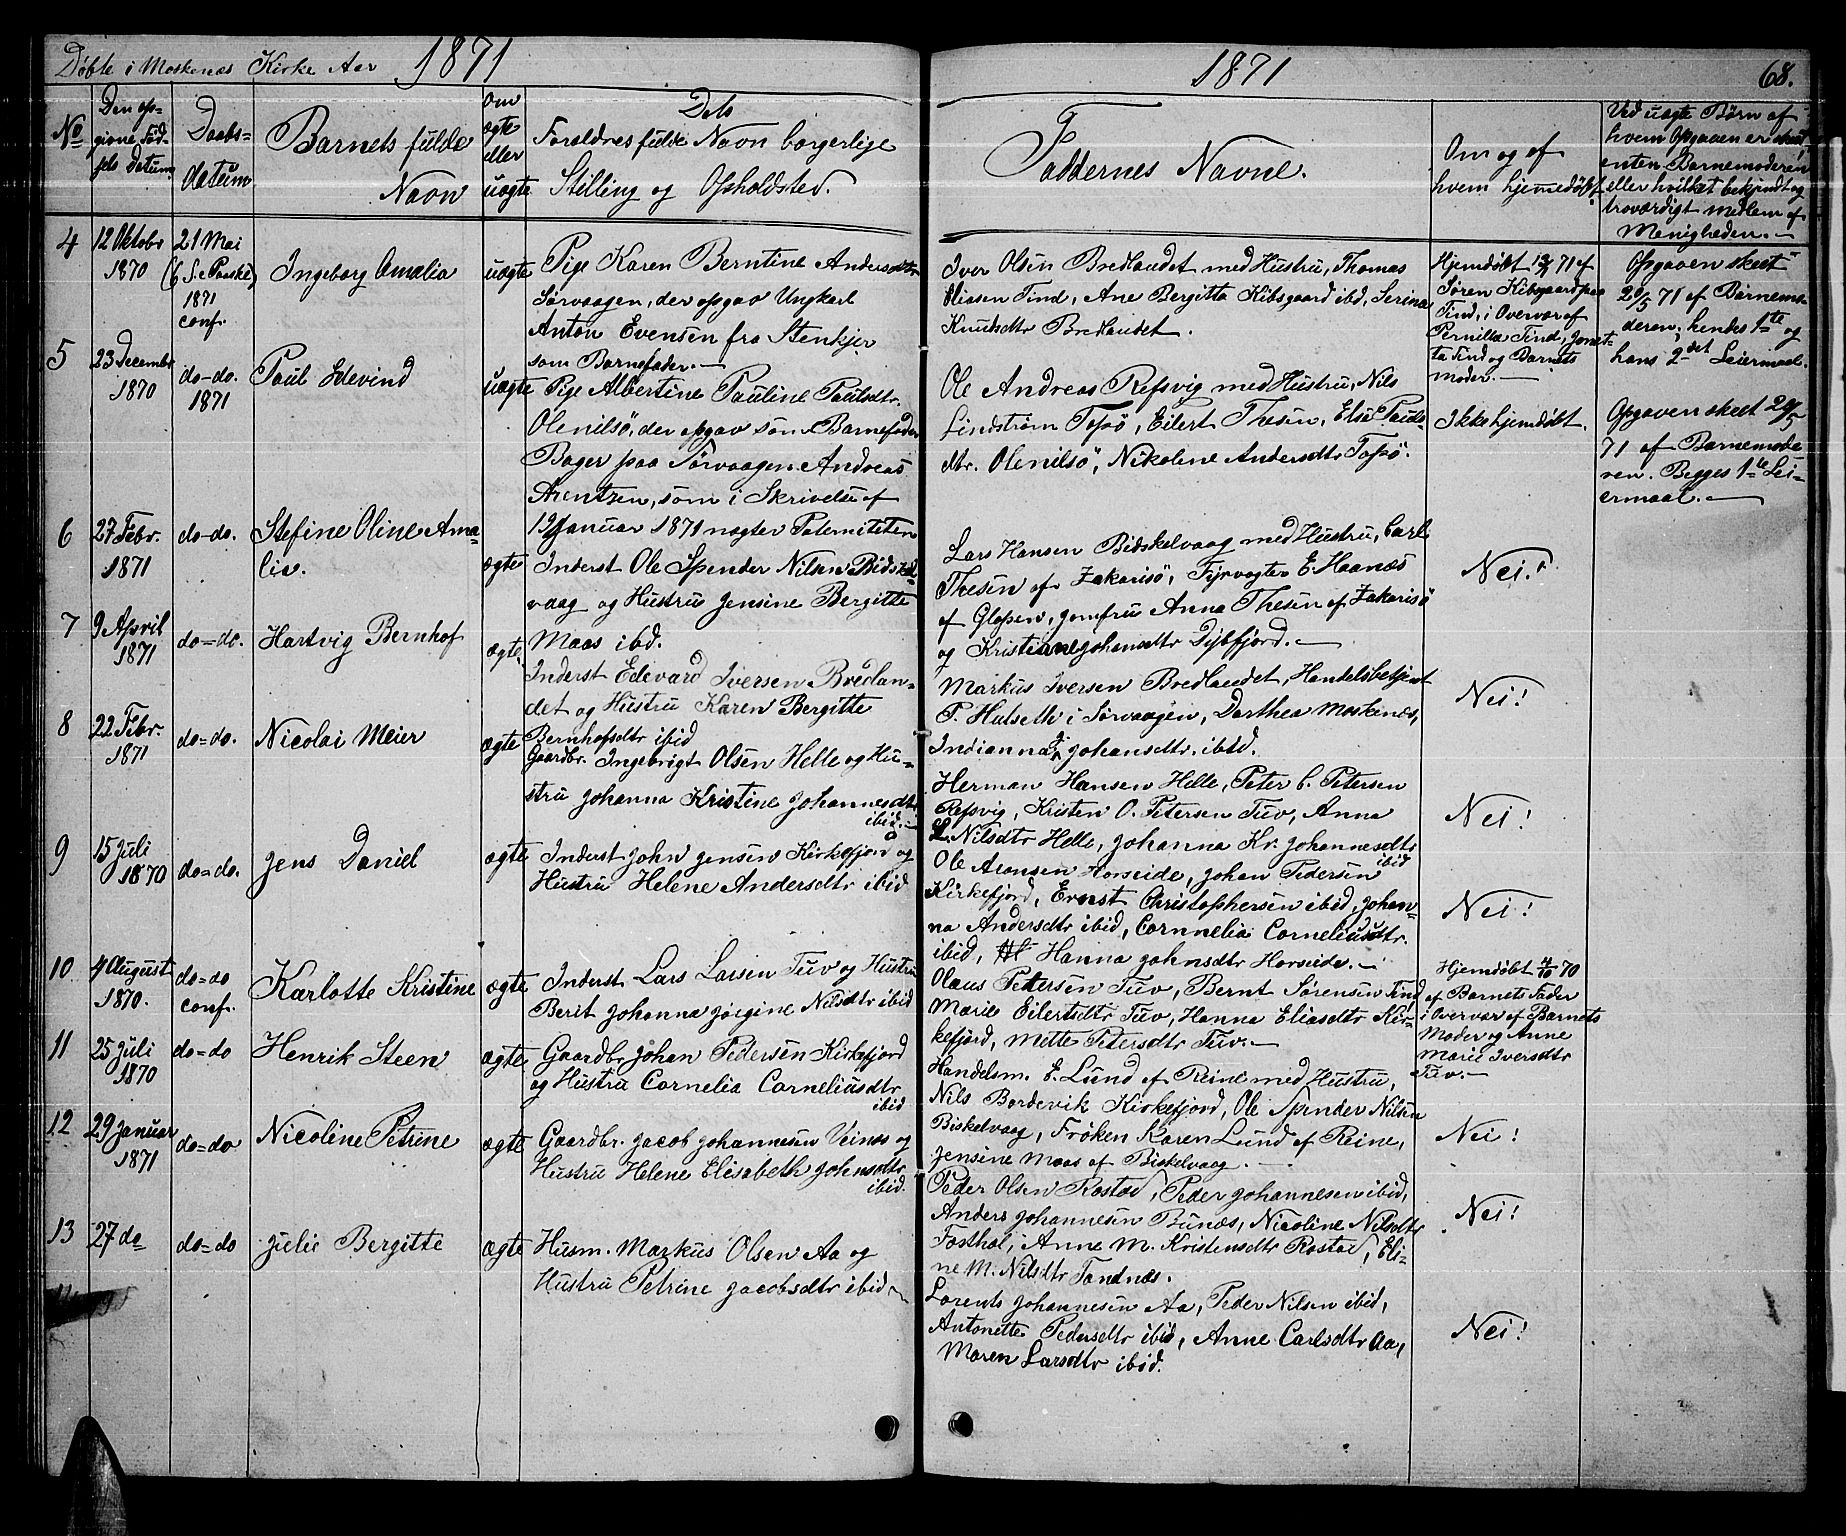 Døbte i Moskenæs Kirke Aar 1871
No
Den op-
givne Fød-
sels Datum
Daabs-
datum
Barnets fulde
Navn
Om
ægte
eller
uægte
Dets
Forældres fulde Navn borgerlige
Stilling og Opholdsted.
4
12 Oktobr
1870
21 Mai
(6 S. e Paaske)
1871
conf.
Ingeborg Amalia
uægte
Pige Karen Berntine Andersdtr
Sørvaagen, der opgav Ungkarl
Anton Evensen fra Stenkjer
som Barnefader.—
5
23 Decembr
1870
do-do.
1871
Paul Edevind
uægte
Pige Albertine Pauline Paulsdtr.
Olenilsö, der opgav som Barnefader
Bager paa Sørvaagen Andreas
Arentzen, som i Skrivelse af
12 Januar 1871 nægter Paterniteten
6
27 Febr.
1871
do-do.
Stefine Oline Ama-
lie.
ægte
Inderst Ole Spender Nilsen Bidskel
vaag og Hustru Jensine Bergitte
Maas ibd.
7
9 April
1871
do=do.
Hartvig Bernhof
ægte
Inderst Edevard Iversen Bredlan-
det og Hustru Karen Bergitte
Bernhofsdtr ibid
8
22 Febr.
1871
do=do.
Nicolai Meier
ægte
Gaardbr. Ingebrigt Olsen Helle og Hu-
stru Johanna Kristine Johannesdtr
ibid.—
9
15 Juli
1870
do=do.
Jens Daniel
ægte
Inderst John Jensen Kirkefjord og
Hustru Helene Andersdtr ibid
10
4 August
1870.
do=do
conf.
Karlotte Kristine
ægte
Inderst Lars Larsen Tuv og Hustru
Berit Johanna Jörgine Nilsdtr ibid
11
25 Juli
1870
do=do
Henrik Steen
ægte
Gaardbr Johan Pedersen Kirkefjord
og Hustru Cornelia Corneliusdtr
ibid
12
29 Januar
1871
do=do
Nicoline Petrine
ægte
Gaardbr. Jacob Johannesen Veines og
Hustru Helene Elisabeth Johnsdtr
ibid.
13
27 do
do=do
Julie Bergitte
ægte
Husm. Markus Olsen Aa og
Hustru Petrine Jacobsdtr ibid
1871
68.
Faddernes Navne.
Om og af
hvem hjemmedøbt.
Ved uægte Børn af
hvem Opgaven er skeet
enten Barnemoderen
eller hvilket bekjendt og
troværdigt Medlem af
Menigheden.—
Iver Olsen Bredlandet med Hustru, Thomas
Eliasen Tind, Ane Bergitta Kibsgaard ibd, Serina
Knudsdtr Bredlandet.
Hjemdøbt 13/1 71 af
Søren Kibsgaard paa
Tind, i Overvær af
Pernilla Tind, Jonet-
ta Tind og Barnets
moder.—
Opgaven skeet
20/5 71 af Barnemo-
deren; hendes 1ste og
hans 2det Leiermaal.
Ole Andreas Refsvig med Hustru, Nils
Lindström Topsö, Eilert Thesen, Elise Pauls-
dtr. Olenilsö, Nikoline Andersdtr Topsö.
Ikke hjemdøbt.
Opgaven skeet 20/5
71 af Barnemode-
ren. Begges 1ste Lei-
ermaal.—
Lars Hansen Bidskelvaag med Hustru, Carl
Thesen af Zakarisö, Fyrvogter E. Haanæs
af Glopen, Jomfru Anna Thesen af Zakarisö
og Kristiane Johansdtr Djupfjord.—
Nei!
Markus Iversen Bredlandet, Handelsbetjent
P. Hulseth i Sørvaagen, Dorthea Moskenæs,
Indianna Johansdtr. ibid.
Nei!
Herman Hansen Helle, Peter C. Petersen
Refsvig, Kristen O. Petersen Tuv, Anna
L. Nilsdtr Helle, Johanna Kr. Johannesdtr
ibid
Nei!
Ole Aronsen Horseide, Johan Pedersen
Kirkefjord, Ernst Christophersen ibid, Johan-
na Andersdtr ibid, Cornnelia Corneliusdtr.
ibid, Hanna Johnsdtr Horseide.—
Nei!
Olaus Petersen Tuv, Bernt Sørensen Tind,
Marie Eilertsdtr Tuv, Hanna Eliasdtr Kir-
kefjord, Mette Petersdtr Tuv.—
Hjemdøbt 4/10 70
af Barnets Fader
i Overvær af Barnets
Moder og Anne
Marie Iversdtr
Tuv.—
Handelsm. E. Lund af Reine med Hustru,
Nils Bordevik Kirkefjord, Ole Spender Nilsen
Biskelvaag, Frøken Karen Lund af Reine,
Jensine Maas af Biskelvaag.—
Nei!
Peder Olsen Rostad, Peder Johannesen ibid,
Anders Johannesen Bunæs, Nicoline Nilsdtr
Forsthol, Anne M. Kristensdtr Rostad, Eli-
ne M. Nilsdtr Tandnæs.
Nei!
Lorents Johannesen Aa, Peder Nilsen ibid,
Antonette Pedersdtr ibid, Anne Carlsdtr Aa,
Maren Larsdtr ibid.
Nei!